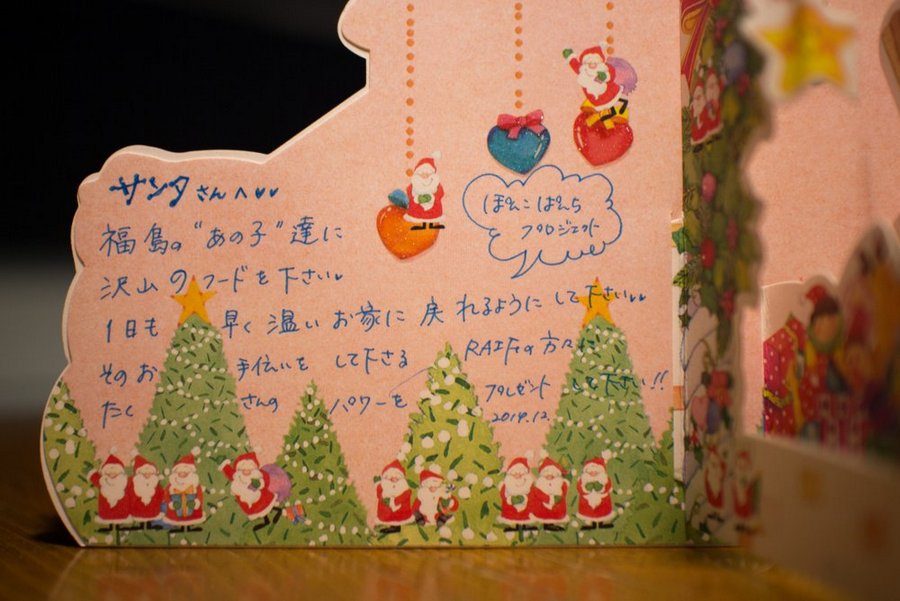 サンタさんへ♥♥
ぽんこぱんち
プロジェクト
福島の"あの子"達に
沢山のフードを下さい♥
1日も早く温いお家に戻れるようにして下さい♥♥
そのお手伝いをして下さるRAIFの方々に
たくさんのパワーをプレゼントして下さい!!
2014.12.